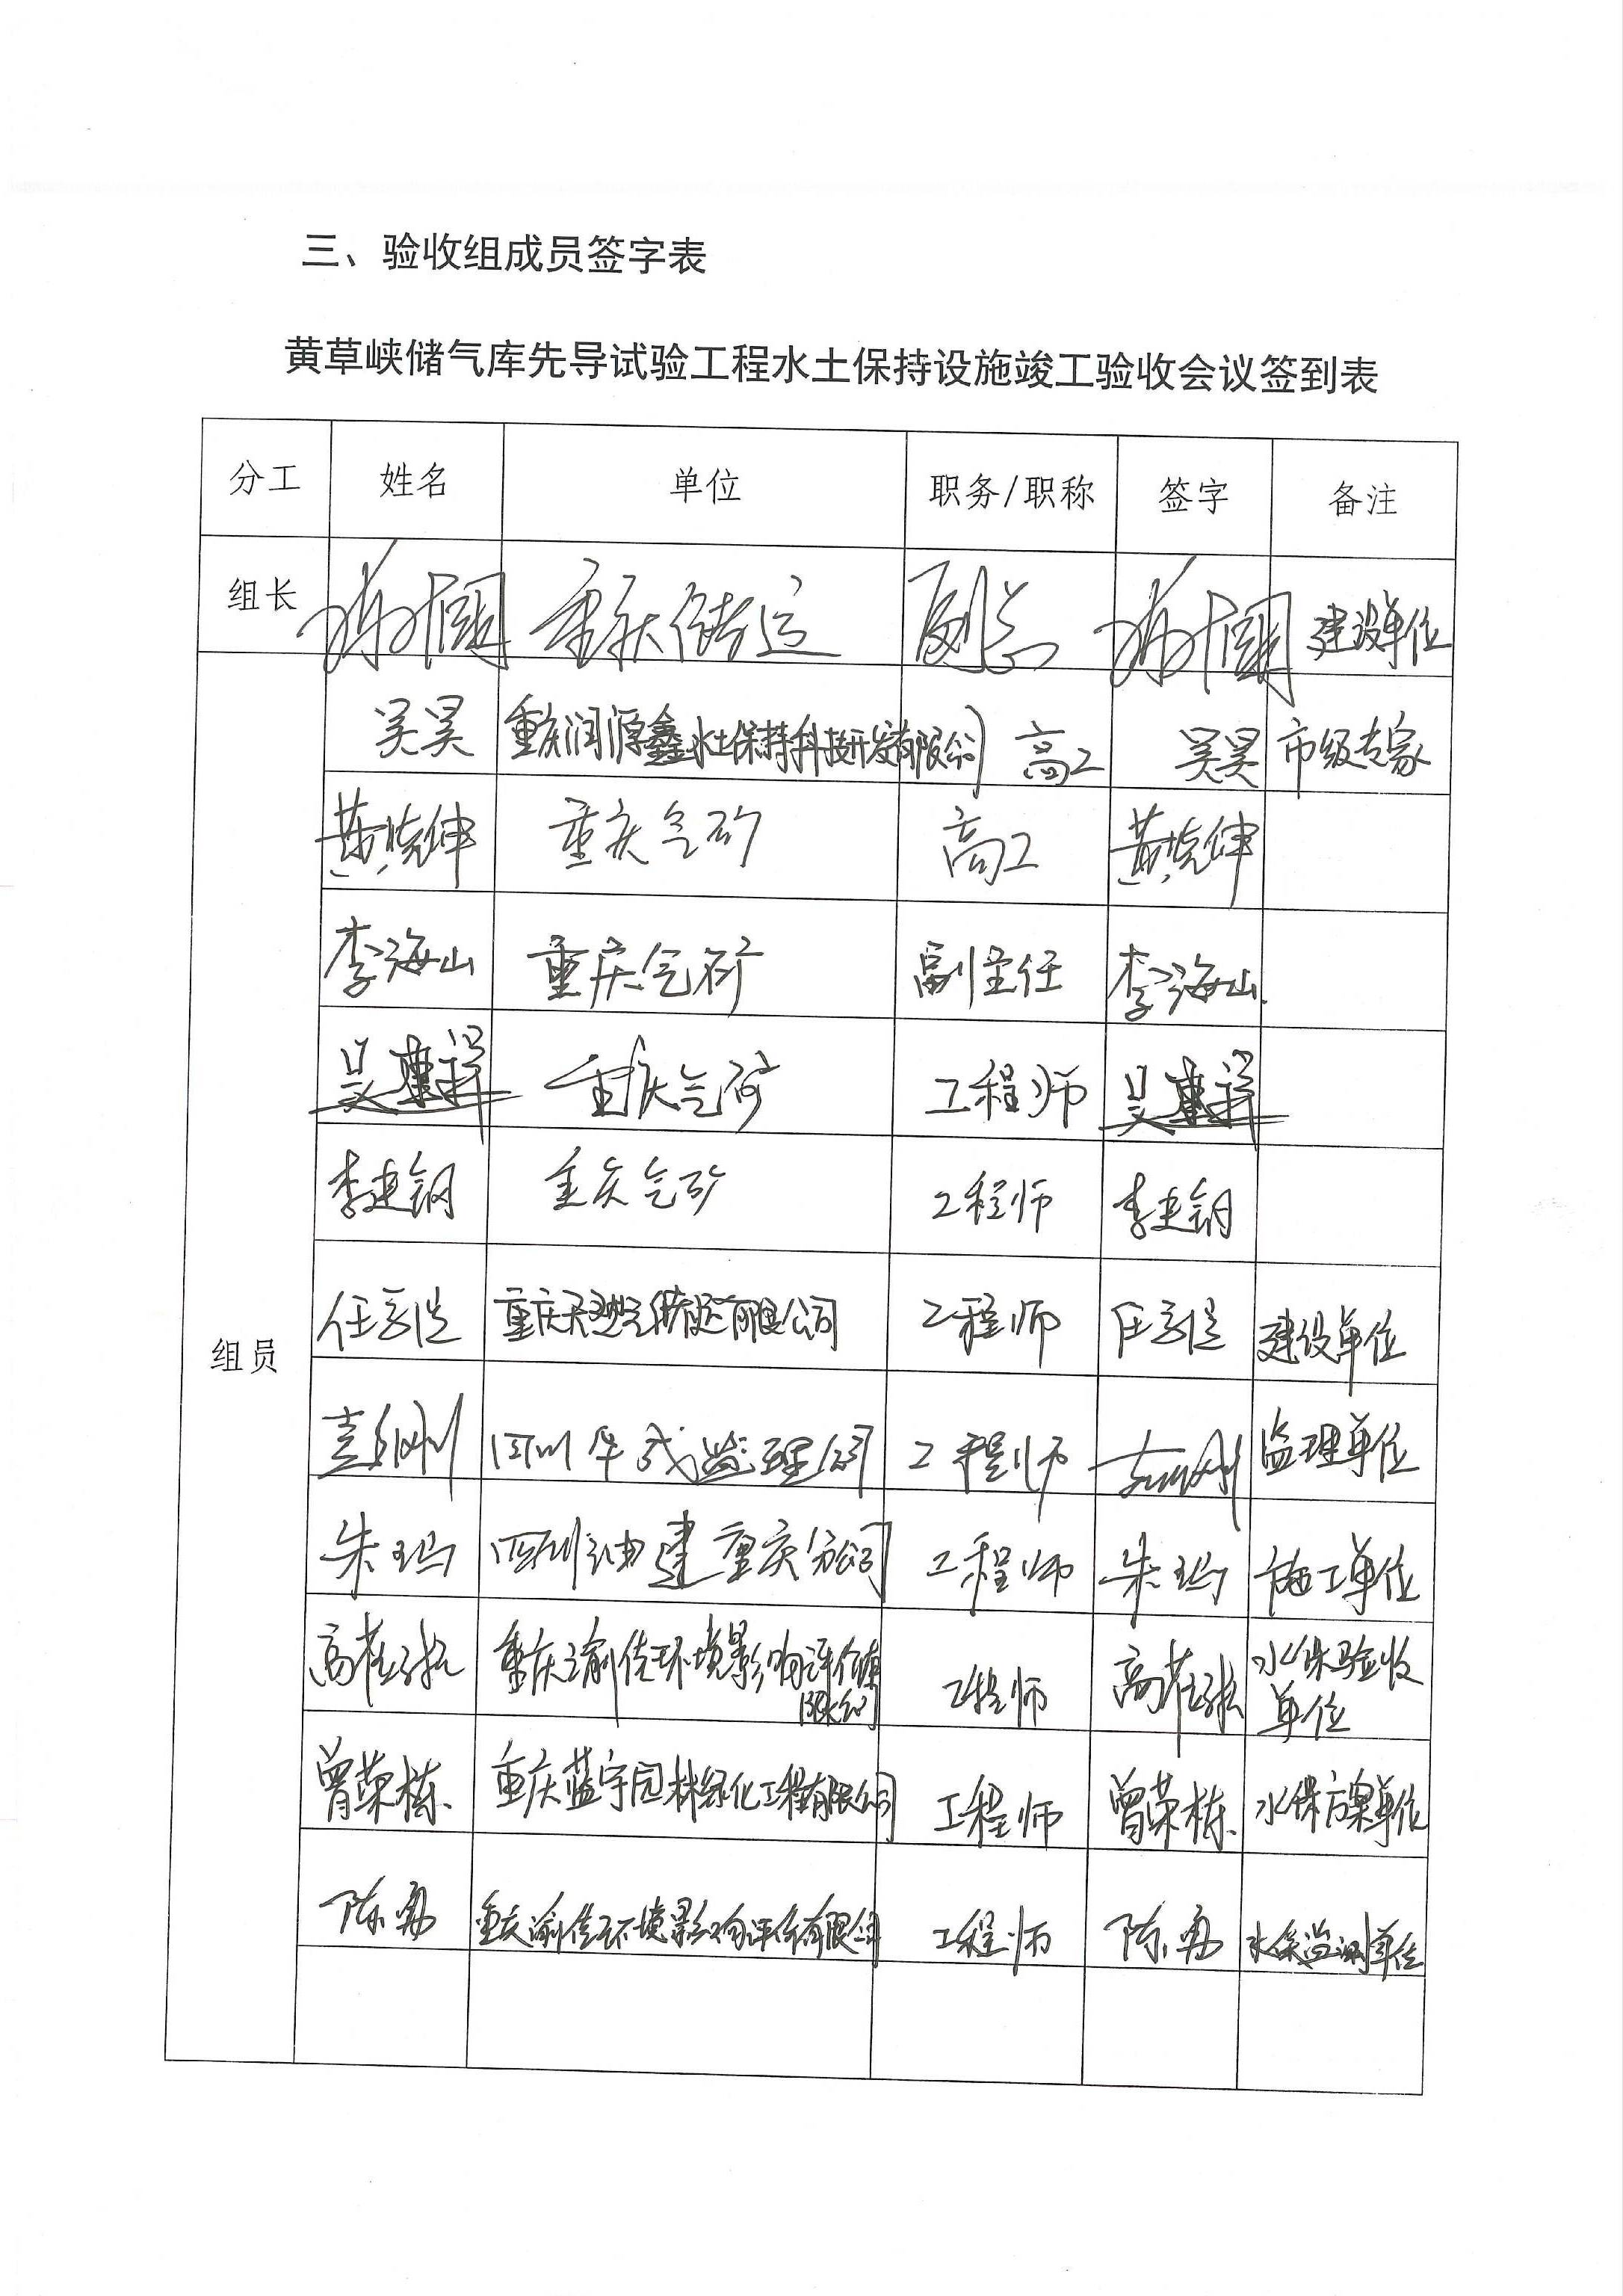 三、验收组成员签字表
黄草峡储气库先导试验工程水土保持设施竣工验收会议签到表
分工 姓名 单位 职务/职称 签字 备注
组长 重庆储运 副总 建设单位
组员
吴昊 重庆润源鑫水土保持科技开发有限公司 高工 吴昊 市级专家
黄晓伟 重庆气矿 高工 黄晓伟
李海山 重庆气矿 副主任 李海山
吴建祥 重庆气矿 工程师 吴建祥
李建钢 重庆气矿 工程师 李建钢
重庆天然气储运有限公司 工程师 建设单位
四川华成监理公司 工程师 监理单位
朱玛 四川油建重庆分公司 工程师 朱玛 施工单位
重庆渝佳环境影响评价有
限公司 工程师 水保验收
单位
曾荣栋 重庆蓝宇园林绿化工程有限公司 工程师 曾荣栋 水保方案单位
陈勇 重庆渝佳环境影响评价有限公司 工程师 陈勇 水保监测单位